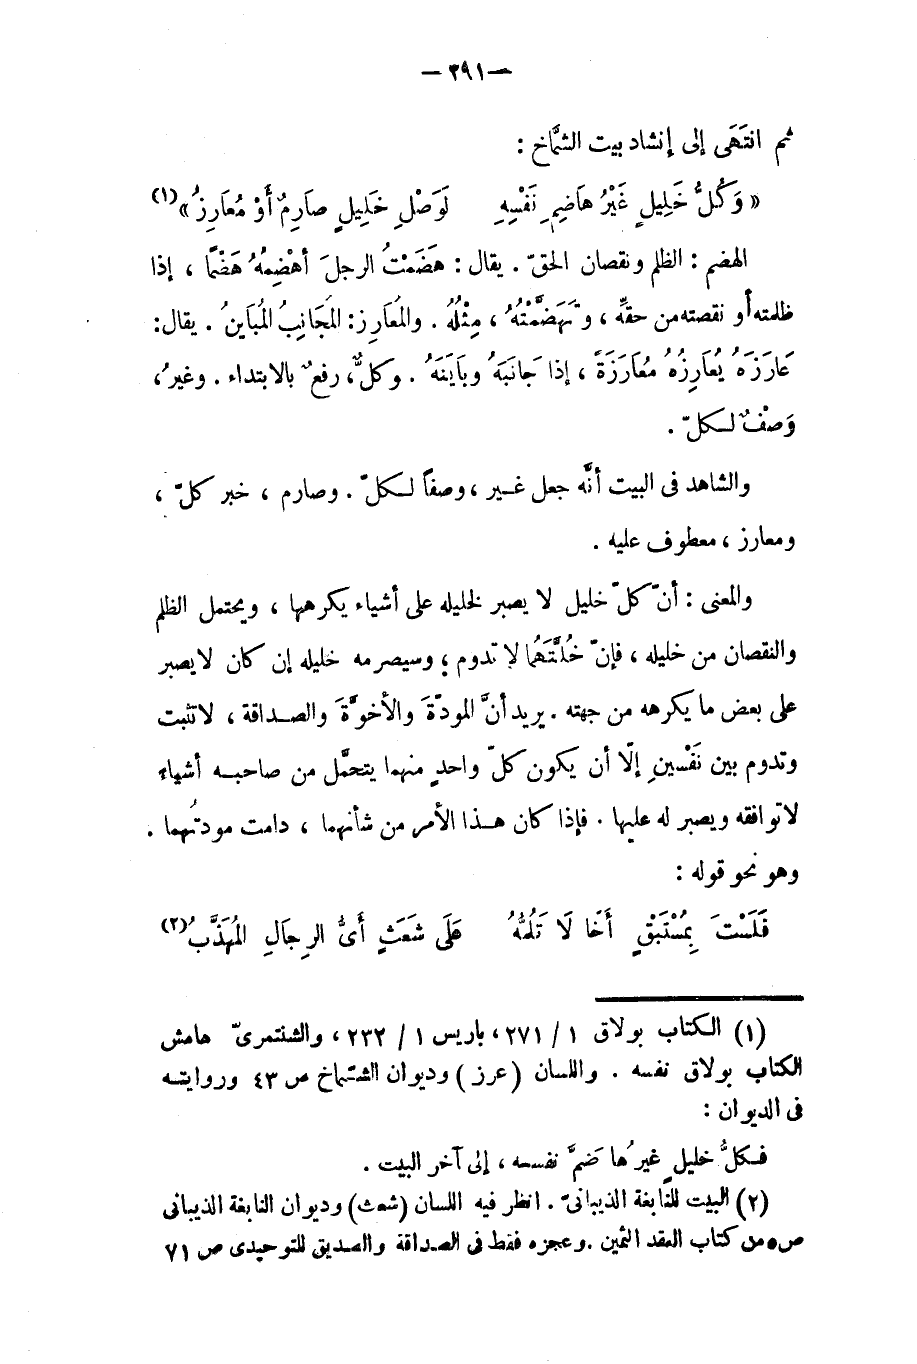 — ٣٩١ —
ثم انتَهَى إلى إنشاد بيت الشمَّاخ :
« وَكُلُّ خَلِيلٍ غَيْرُ هَاضِمِ نَفْسِهِ لَوَصْلِ خَلِيلٍ صارِمٌ أَوْ مُعَارِزُ »(١)
الهضم : الظلم ونقصان الحقّ . يقال : هَضَمْتُ الرجلَ أهْضِمُهُ هَضْمًا ، إذا
ظلمته أو نقصته من حقِّه ، وتَهَضَّمْتُهُ ، مِثْلُهُ . والمُعَارِز : المُجَانِبُ المُبَاينُ . يقال :
عَارَزَهُ يُعَارِزُهُ مُعَارَزَةً ، إذا جَانَبَهُ وبَايَنَهُ . وكلٌّ ، رفعٌ بالابتداء . وغيرُ ،
وَصْفٌ لـكلّ .
والشاهد فى البيت أنَّه جعل غـير ، وصفاً لـكلّ . وصارم ، خبر كلّ ،
ومعارز ، معطوف عليه .
والمعنى : أنّ كلّ خليل لا يصبر لخليله على أشياء يكرهها ، ويحتمل الظلم
والنقصان من خليله ، فإنّ خُلَّتَهُما لا تدوم ؛ وسيصرمه خليله إن كان لا يصبر
على بعض ما يكرهه من جهته . يريد أنَّ المودّةَ والأخوَّةَ والصـداقة ، لا تثبت
وتدوم بين نَفْسينِ إلّا أن يكون كلّ واحدٍ منهما يتحمَّل من صاحبـه أشياء
لا توافقه ويصبر له عليها . فإذا كان هـذا الأمر من شأنهما ، دامت مودتُهما .
وهو نحو قوله :
فَلَسْتَ بِمُسْتَبْقٍ أَخًا لَا تَلُمُّهُ عَلَى شَعَثٍ أَىُّ الرِجَالِ المُهَذَّبُ(٢)
(١) الـكتاب بولاق ١ / ٢٧١ ، باريس ١ / ٢٣٢ ، والشنتمرىّ هامش
الكتاب بولاق نفسه . واللسان (عرز) وديوان الشـمّاخ ص ٤٣ وروايتـه
فى الديوان :
فـكلُّ خليلٍ غيرُها ضَمَّ نفسه ، إلى آخر البيت .
(٢) البيت للنابغة الذبيانىّ . انظر فيه اللسان (شعث) وديوان النابغة الذيبانى
ص ٥ من كتاب العقد الثمين . وعجزه فقط فى الصداقة والصديق للتوحيدى ص ٧١